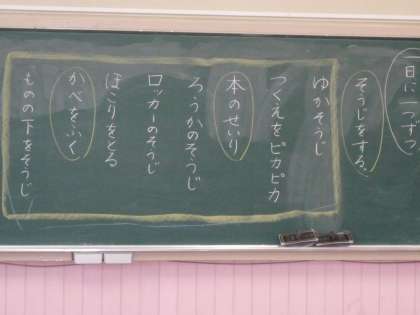 一日に一つずつ
そうじをする。
ゆかそうじ
つくえをピカピカ
本のせいり
ろうかのそうじ
ロッカーのそうじ
ほこりをとる
かべをふく
ものの下をそうじ